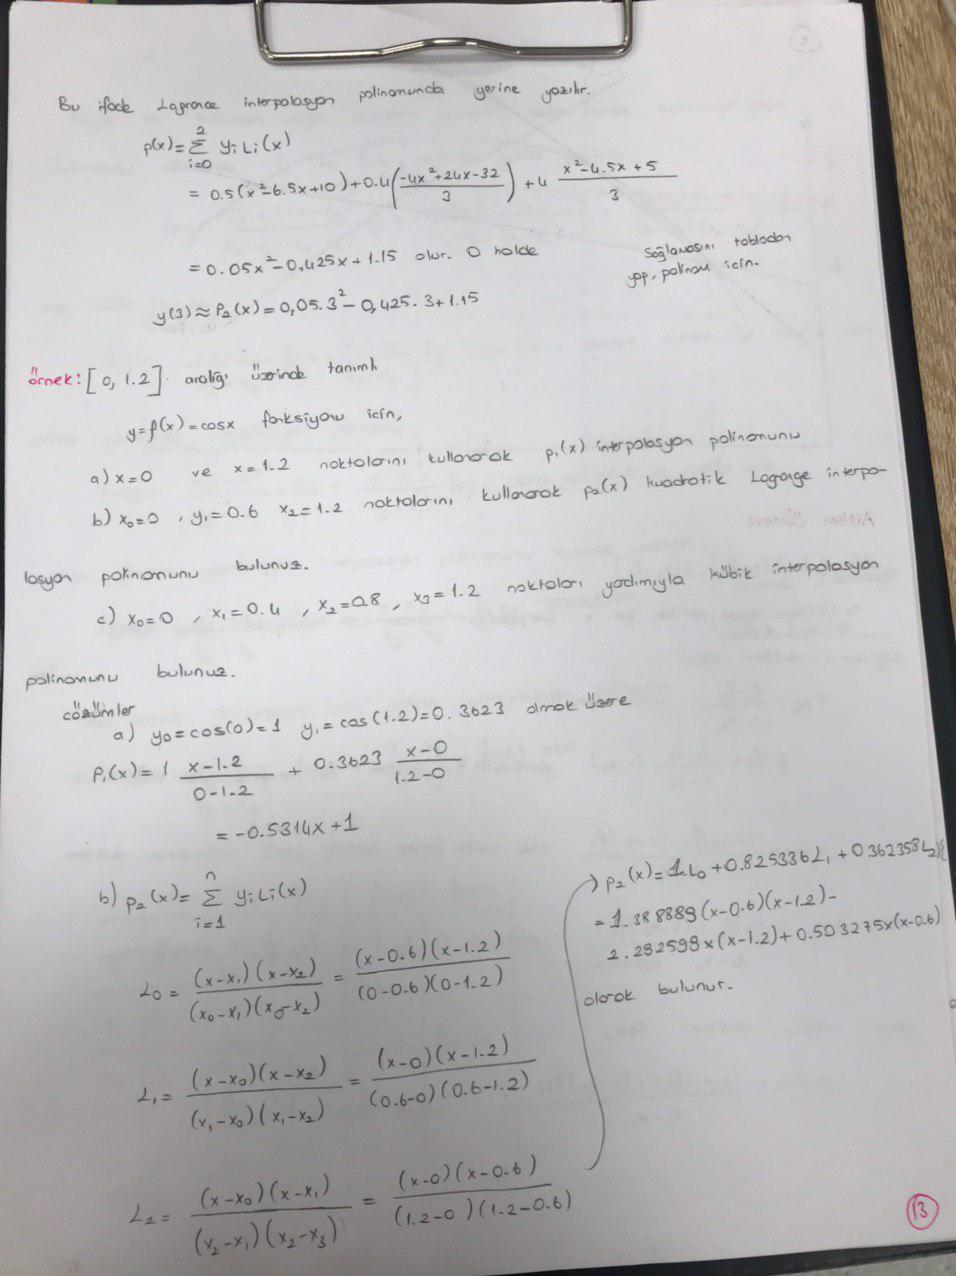 Bu ifade Lagrance interpolasyon polinomunda yerine yazılır.
p(x)=∑_{i=0}^{2} yi Li(x)
= 0.5(x²-6.5x+10)+0.4((-4x²+24x-32)/3) +4 (x²-4.5x+5)/3
=0.05x²-0,425x+1.15 olur. O halde
Sağlamasını tablodan
yap, polinom için.
y(3)≈P₂(x)=0,05.3²-0,425.3+1.15
Örnek: [0, 1.2] aralığı üzerinde tanımlı
y=f(x)=cosx fonksiyonu için,
a) x=0 ve x=1.2 noktalarını kullanarak p₁(x) interpolasyon polinomunu
b) x₀=0 , y₁=0.6 x₂=1.2 noktalarını kullanarak p₂(x) kuadratik Lagrange interpo-
lasyon polinomunu bulunuz.
c) x₀=0 , x₁=0.4 , x₂=0.8 , x₃=1.2 noktaları yardımıyla kübik interpolasyon
polinomunu bulunuz.
çözümler
a) y₀=cos(0)=1 y₁=cos(1.2)=0.3623 olmak üzere
P₁(x)=1 (x-1.2)/(0-1.2) + 0.3623 (x-0)/(1.2-0)
= -0.5314x+1
b) p₂(x)=∑_{i=1}^{n} yi Li(x)
L₀= (x-x₁)(x-x₂)/(x₀-x₁)(x₀-x₂) = (x-0.6)(x-1.2)/(0-0.6)(0-1.2)
L₁= (x-x₀)(x-x₂)/(x₁-x₀)(x₁-x₂) = (x-0)(x-1.2)/(0.6-0)(0.6-1.2)
L₂= (x-x₀)(x-x₁)/(x₂-x₁)(x₂-x₃) = (x-0)(x-0.6)/(1.2-0)(1.2-0.6)
p₂(x)=1L₀+0.825336L₁+0.362358L₂
=1.388889(x-0.6)(x-1.2)-
2.292599x(x-1.2)+0.503275x(x-0.6)
olarak bulunur.
13